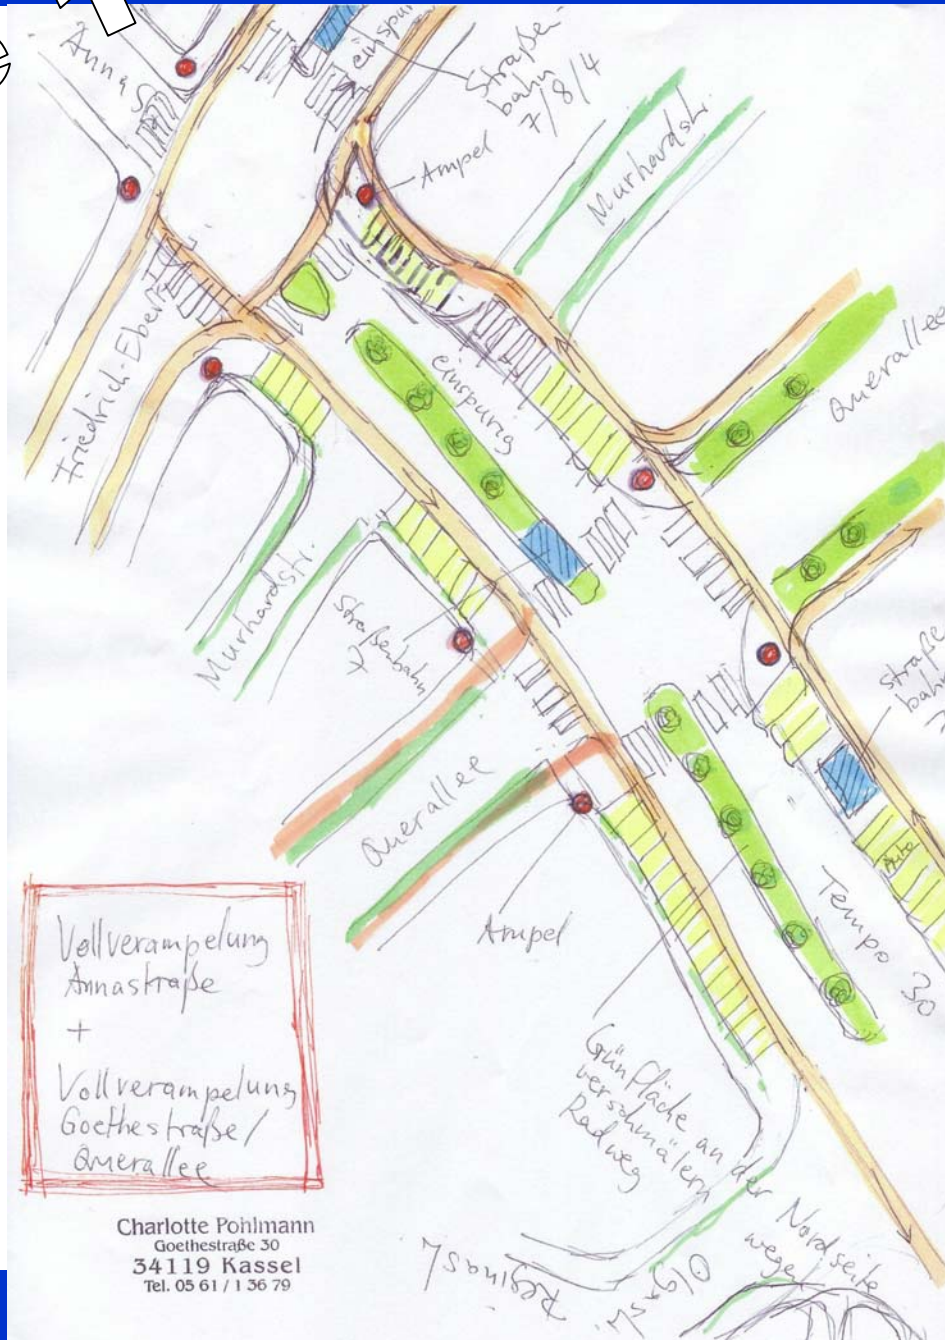 Anna S
einspur
Straßen
bahn
7/8/4
Ampel
Murhardstr.
Friedrich-Ebert
einspurig
Querallee
Murhardstr.
Straßenbahn
7
Straße
bahn
Querallee
Ampel
Auto
Tempo 30
Grünfläche an der Nordseite
verschmälern wegen
Radweg
Vollverampelung
Annastraße
+
Vollverampelung
Goethestraße/
Querallee
Charlotte Pohlmann
Goethestraße 30
34119 Kassel
Tel. 05 61 / 1 36 79
Olgastr.